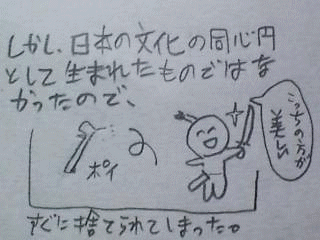 しかし、日本の文化の同心円
として生まれたものではな
かったので、
ポイ
こっちの方が
美しい
すぐに捨てられてしまった。